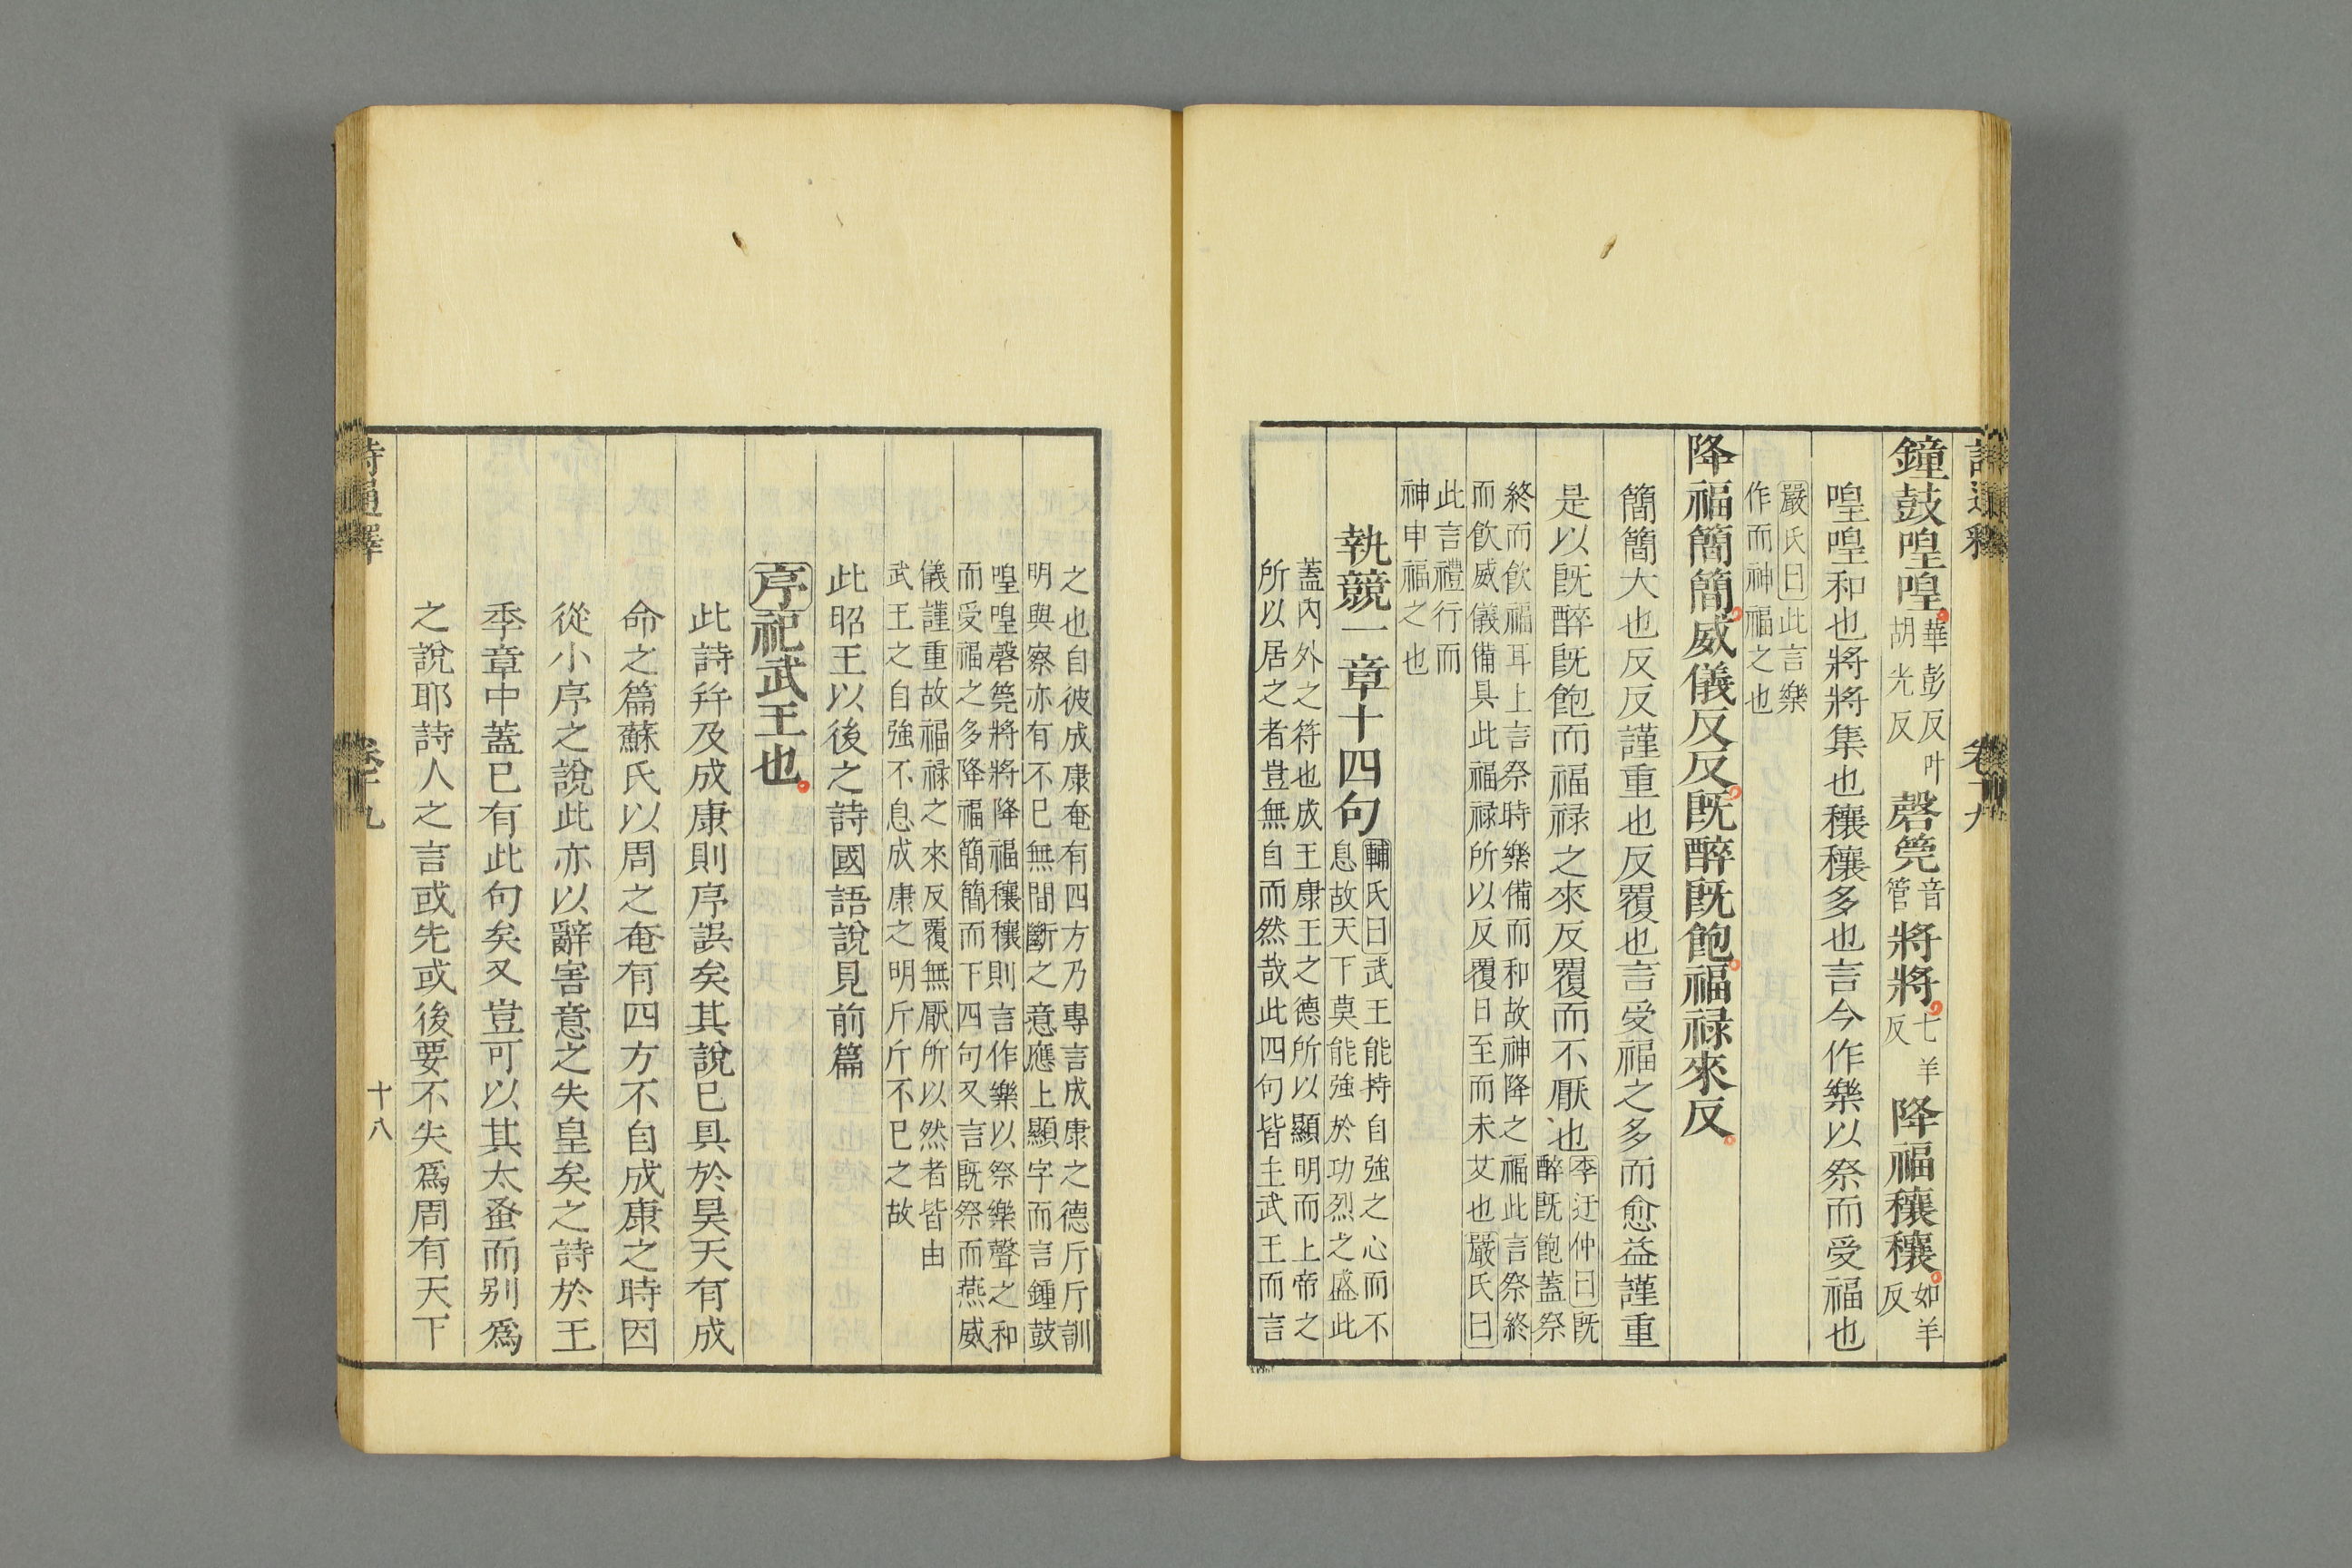 鐘鼓喤喤華彭反叶胡光反磬筦音管將將七羊反降福穰穰如羊反
喤喤和也將將集也穰穰多也言今作樂以祭而受福也
嚴氏曰此言樂
作而神福之也
降福簡簡威儀反反既醉既飽福禄來反
簡簡大也反反謹重也反覆也言受福之多而愈益謹重
是以既醉既飽而福禄之來反覆而不厭也季迂仲曰既
醉既飽蓋祭
終而飲福耳上言祭時樂備而和故神降之福此言祭終
而飲威儀備具此福禄所以反覆日至而未艾也嚴氏曰
此言禮行而
神申福之也
執競一章十四句輔氏曰武王能持自強之心而不
息故天下莫能強於功烈之盛此
蓋內外之符也成王康王之德所以顯明而上帝之
所以居之者豈無自而然哉此四句皆主武王而言
詩通釋
卷十九
之也自彼成康奄有四方乃專言成康之德斤斤訓
明與察亦有不已無間斷之意應上顯字而言鍾鼓
喤喤磬筦將將降福穰穰則言作樂以祭樂聲之和
而受福之多降福簡簡而下四句又言既祭而燕威
儀謹重故福禄之來反覆無厭所以然者皆由
武王之自強不息成康之明斤斤不已之故
此昭王以後之詩國語說見前篇
序祀武王也
此詩幷及成康則序誤矣其說已具於昊天有成
命之篇蘇氏以周之奄有四方不自成康之時因
從小序之說此亦以辭害意之失皇矣之詩於王
季章中蓋已有此句矣又豈可以其太蚤而别爲
之說耶詩人之言或先或後要不失爲周有天下
詩通釋
卷十九
十八